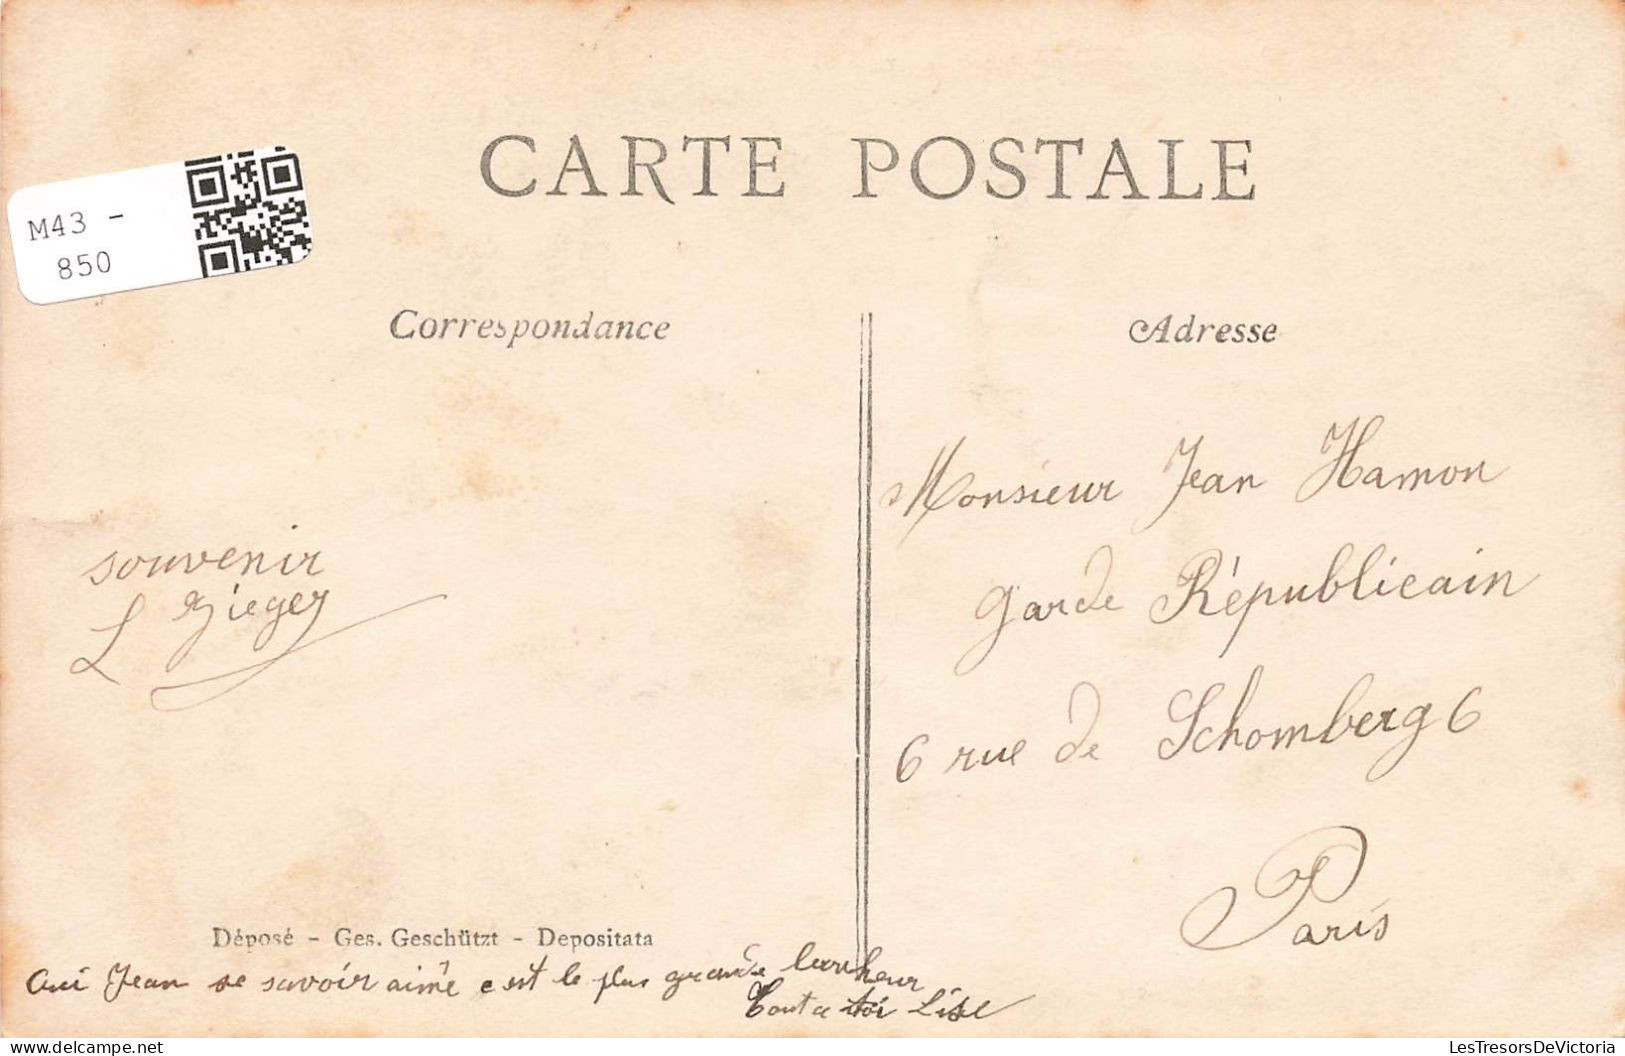 CARTE POSTALE
M43 -
850
Correspondance
Adresse
souvenir
L
Monsieur Jean Hamon
garde Républicain
6 rue de Schomberg 6
Paris
Déposé - Ges. Geschützt - Depositata
oui Jean se savoir aimé c est le plus grande bonheur
Tout a toi Lise
LesTresorsDeVictoria
delcampe.net